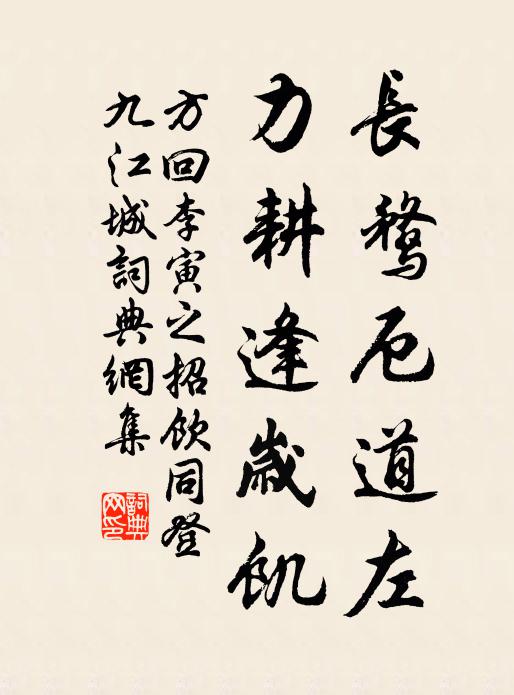 長騖厄道左
力耕逢歲飢
方回李寅之招飲同登
九江城詞典網集
詞典
网印